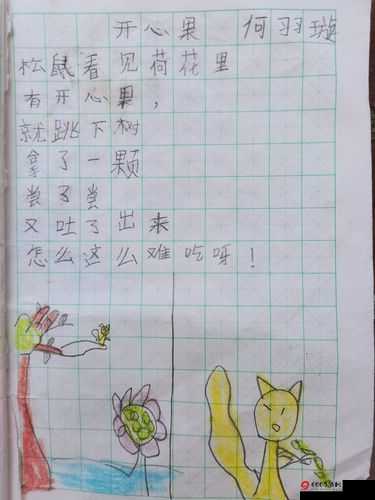 开心果 何羽璇
松鼠看见荷花里
有开心果，
就跳下树
拿了一颗
尝了尝
又吐了出来
怎么这么难吃呀！